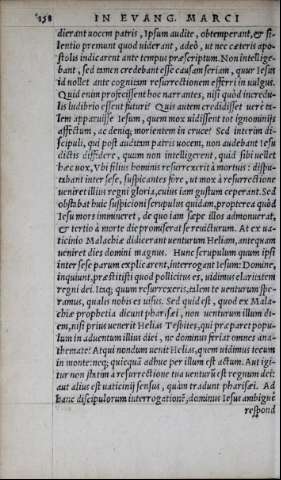 158 IN EVANG. MARCI
dierant uocem patris, Ipsum audite, obtemperant, & si-
lentio premunt quod uiderant, adeò, ut nec cæteris apo-
stolis indicarent ante tempus præscriptum. Non intellige-
bant, sed tamen credebant esse causam seriam, quur Iesus
id nollet ante carnis resurrectionem efferri in uulgus.
Quid enim profecissent hoc narrantes, nisi quòd incredu-
lis ludibrio essent futuri? Quis autem credidisset uere ta-
lem apparuisse Iesum, quem mox uidissent tot ignominijs
affectum, ac deniq; morientem in cruce? Sed interim di-
scipuli, qui post auditam patris uocem, non audebant Iesu
dictis diffidere, quum non intelligerent, quid sibi uellet
hæc uox, Vbi filius hominis resurrexerit à mortuis: dispu-
tabant inter sese, suspicantes fore, ut mox à resurrectione
ueniret illius regni gloria, cuius iam gustum ceperant. Sed
obstabat huic suspicioni scrupulus quidam, propterea quòd
Iesu mors immineret, de quo iam sæpe illos admonuerat,
& tertio à morte die promiserat se reuicturum. At ex ua-
ticinio Malachiæ didicerant uenturum Heliam, antequam
ueniret dies domini magnus. Hunc scrupulum quum ipsi
inter sese parum explicarent, interrogant Iesum: Domine,
inquiunt, præstitisti quod pollicitus es, uidimus claritatem
regni dei. Itaq; quum resurrexeris, talem te uenturum spe-
ramus, qualis nobis es uisus. Sed quid est, quod ex Mala-
chiæ prophetia dicunt pharisæi, non uenturum illum di-
em, nisi prius uenerit Helias Tesbites, qui præparet popu-
lum in aduentum illius diei, ne dominus feriat omnes ana-
themate? Atqui nondum uenit Helias, quem uidimus tecum
in monte: neq; quicquā adhuc per illum est actum. Aut igi-
tur non statim à resurrectione tua uenturū est regnum dei:
aut alius est uaticinij sensus, quàm tradunt pharisæi. Ad
hanc discipulorum interrogationē, dominus Iesus ambiguè
respond